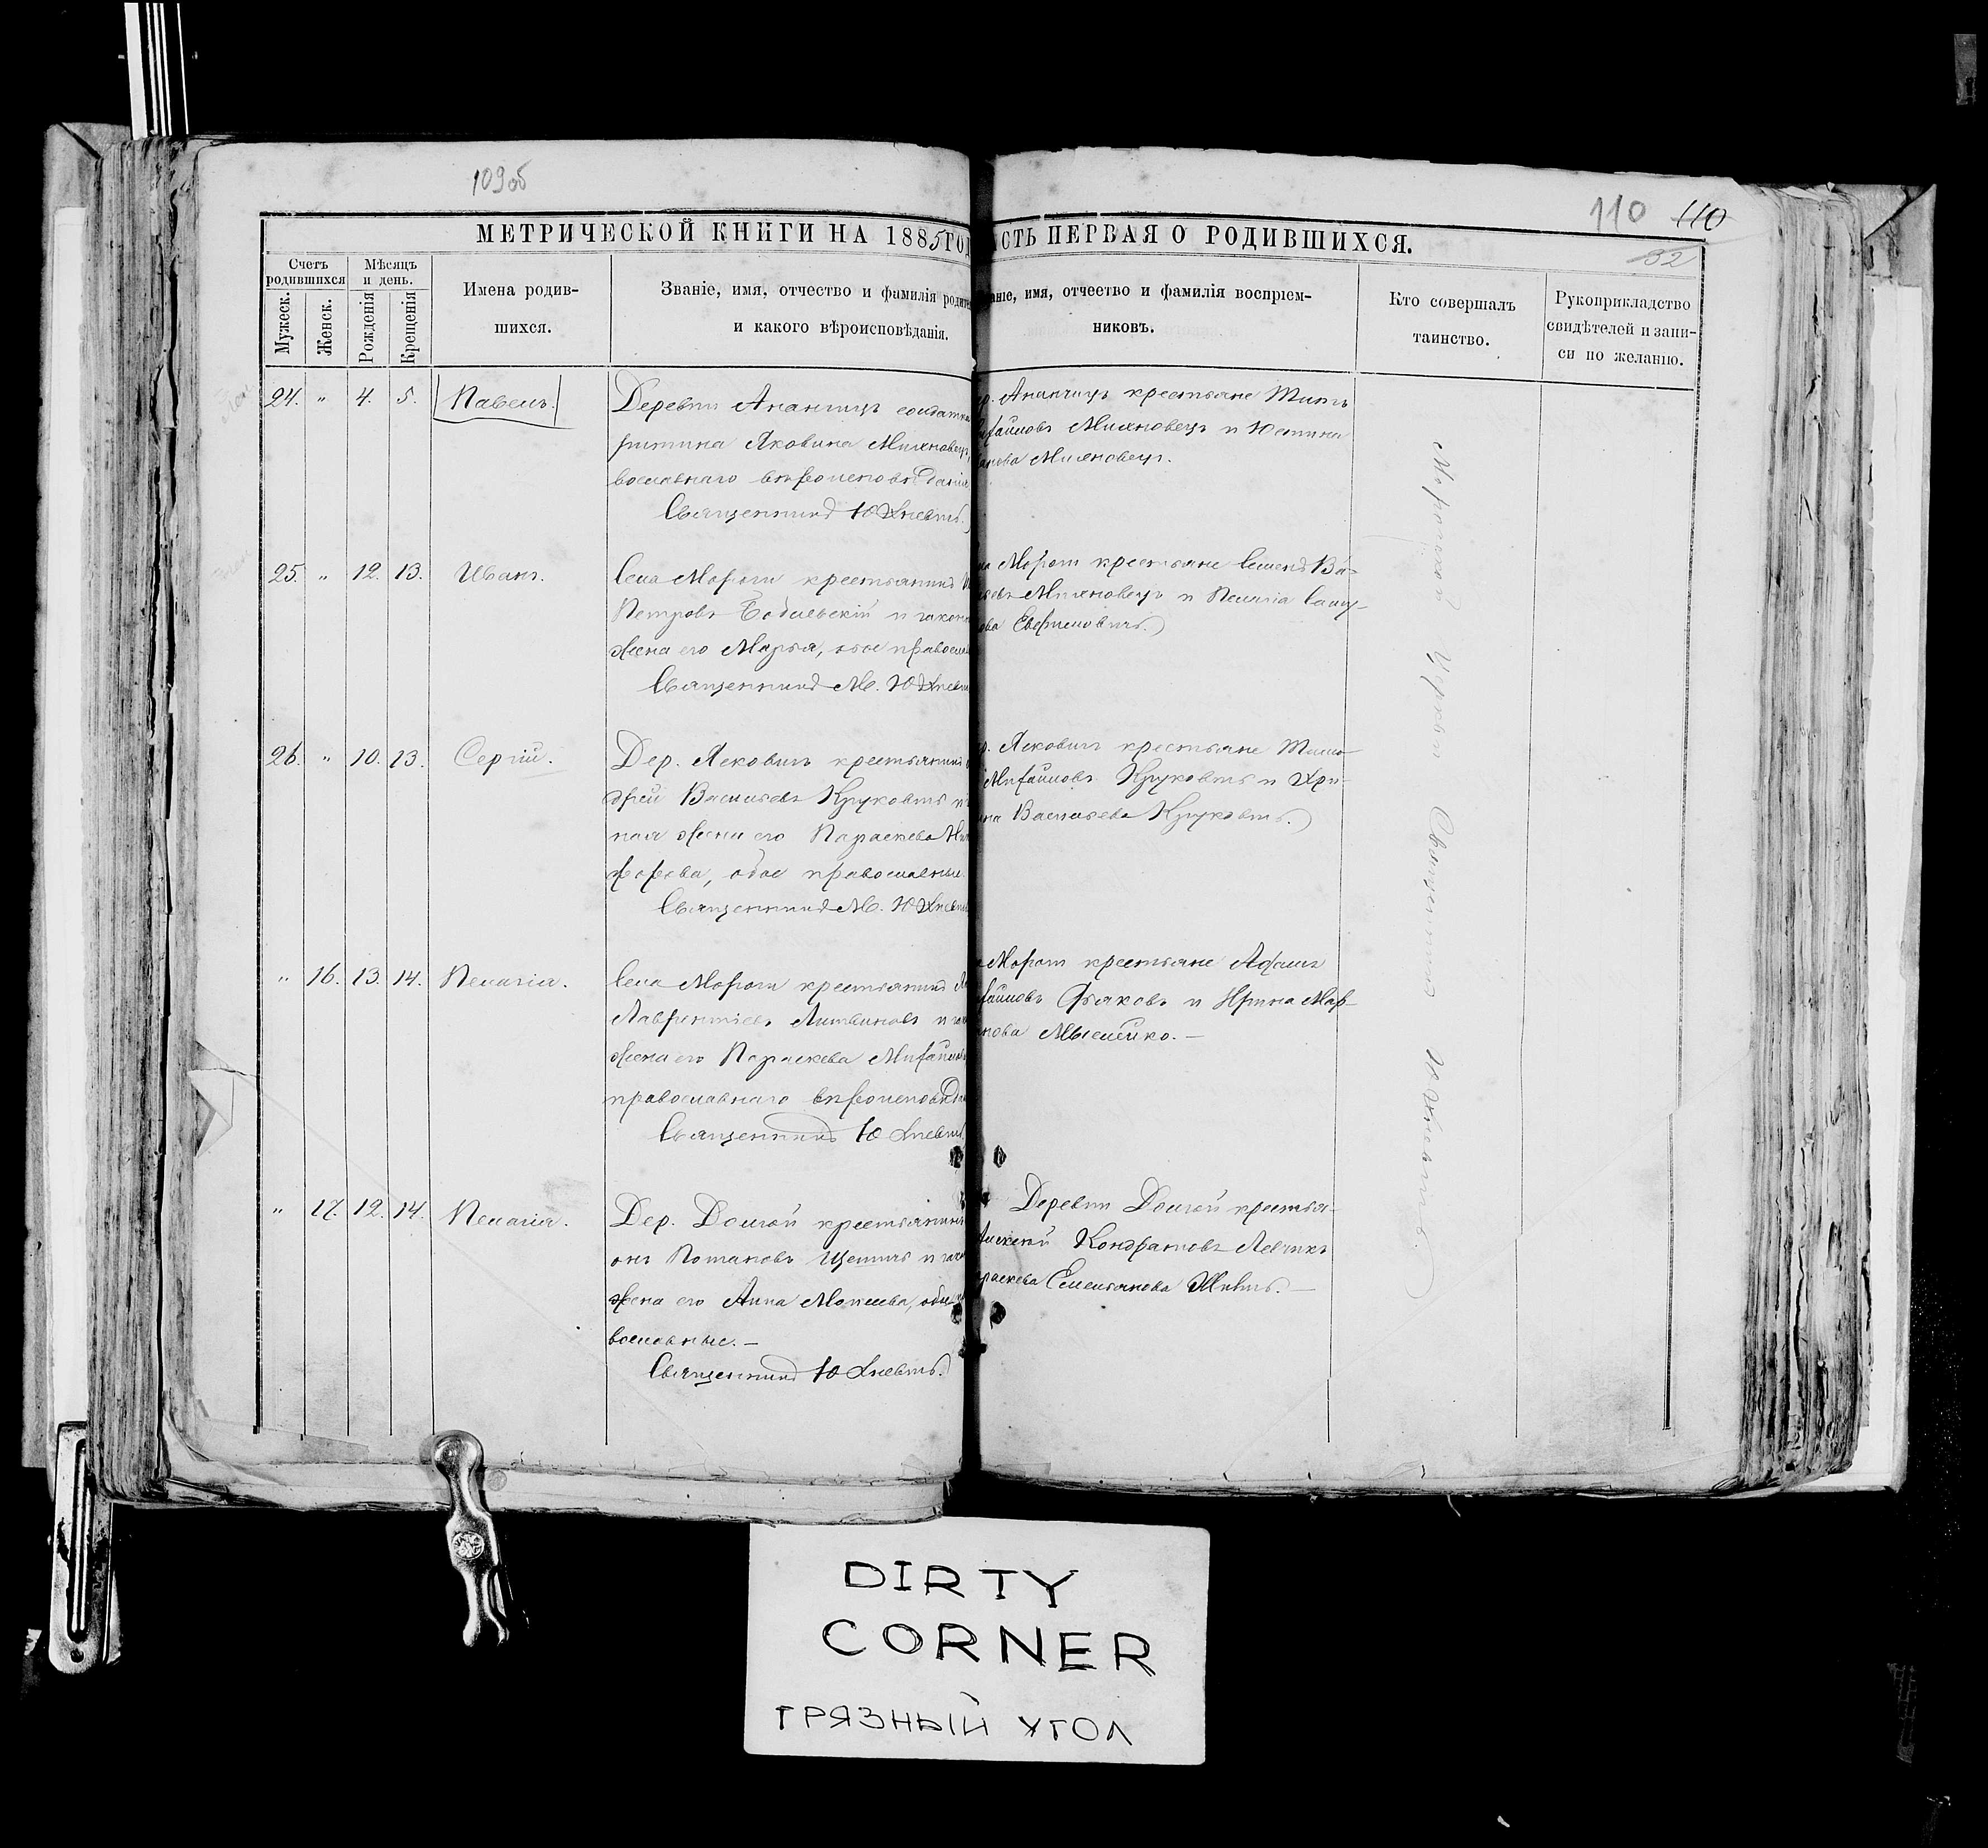 109об
110 110
32
МЕТРИЧЕСКОЙ КНИГИ НА 1885 ГОД
СТЬ ПЕРВАЯ О РОДИВШИХСЯ.
Счетъ родившихся
Мужеск.
Женск.
Мѣсяцъ и день.
Рожденія
Крещенія
Имена родив-
шихся.
Званіе, имя, отчество и фамилія родите
и какого вѣроисповѣданія.
ніе, имя, отчество и фамилія воспріем-
никовъ.
Кто совершалъ
таинство.
Рукоприкладство
свидѣтелей и запи-
си по желанію.
24. " 4. 5. Павелъ.
Деревни Ананчицъ солдатка
Яковина Миxновецъ,
вославнаго вѣроисповѣданія
Священникъ Юхневичъ.
Ананчицъ крестьяне
Михновецъ и Юстина
Михновецъ.
25. " 12. 13. Иванъ.
Села Морочи крестьянинъ
Петровъ и закон
жена его Марья, обое правосла
Священникъ М. Юхневи
Морочи крестьяне Семенъ Ва-
Михновецъ и Пелагія
26. " 10. 13. Сергій.
Дер. Ясковичъ крестьянинъ
дрей Васильевъ Круковичъ и
ная жена его Параскева
форова, обое православные.
Священникъ М. Юхневи
Ясковичъ крестьяне
Михайловъ Круковичъ и Хри-
на Васильева Круковичъ.
" 16. 13. 14. Пелагія.
Села Морочи крестьянинъ
Лаврентіевъ Литвиновъ и
жена его Параскева Михайлов
православнаго вѣроисповѣда
Священникъ Юхневичъ
Морочи крестьяне Адамъ
Дьяковъ и Ирина Мар-
нова Мысейко. —
" 17. 12. 14. Пелагія.
Дер. Долгой крестьянинъ
онъ Потаповъ и зак
жена его Анна Моисеева, обое
вославные. —
Священникъ Юхневичъ.
Деревни Долгой крестья-
Алексѣй Кондратовъ Левчикъ
раскева Емельянова —
Морочской Церкви Священникъ Юхневичъ
DIRTY
CORNER
ГРЯЗНЫЙ УГОЛ